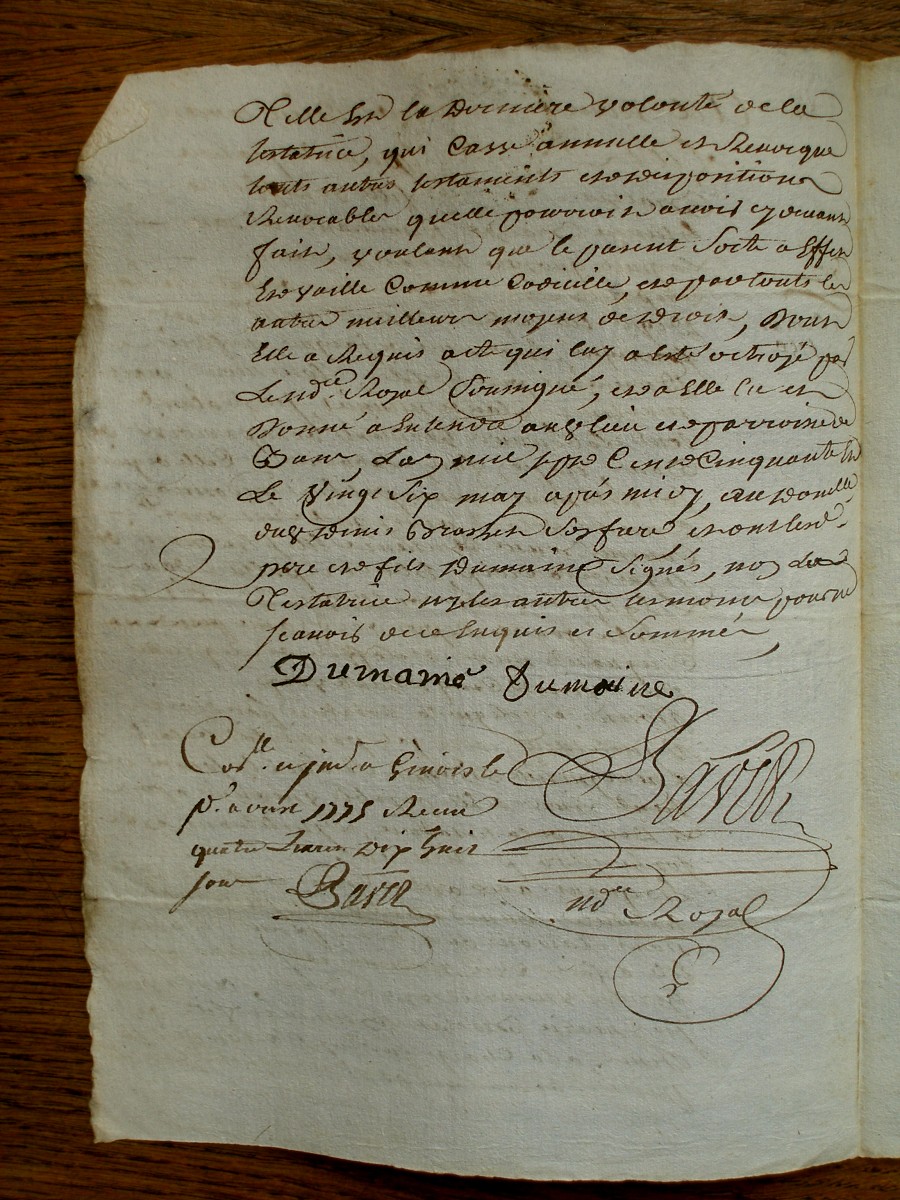 Telle Est la Derniere volonté de la
testatrice, qui Casse annulle et Revocque
touts autres testaments et dispositions
Revocables quelle pourroit avoir cy devant
fait, voulant que le present Sorte a Effet
Et vaille Comme Codicille, et par touts les
autres meilleurs moyens de droit, Dont
Elle a Requis acte qui luy a Esté octroyé par
Le nd.re Royal Soussigné, et a Elle lu et
Donné a Entendre au lieu et parroisse de
Lan mil sept Cent Cinquante
Le Vingt Six may après midy,
Denis et ont lesd.
pere et fils Dumaine Signés, non La
Testatrice ny les autres temoins pour ne
scavoir de ce Enquis et Sommés
Dumaine Dumaine
Con.llé a le
p.r avril 1775 Receu
quatre Livres Dix huit
sous
nd.re Royal